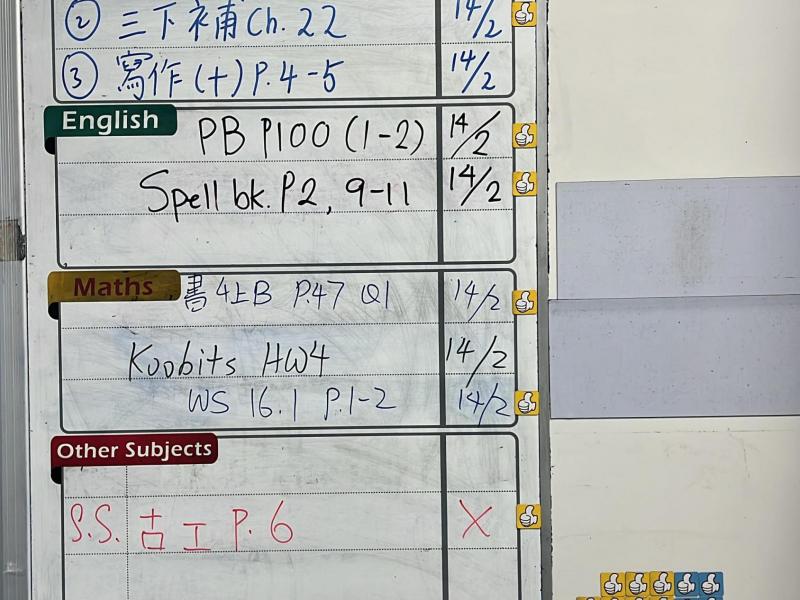 ② 三下補 Ch. 22 14/2
③ 寫作(十) P. 4-5 14/2
English
PB P100 (1-2) 14/2
Spell bk. P2, 9-11 14/2
Maths
書 4上B P.47 Q1 14/2
Koobits HW4 14/2
WS 16.1 P.1-2 14/2
Other Subjects
S.S. 古工 P. 6 X